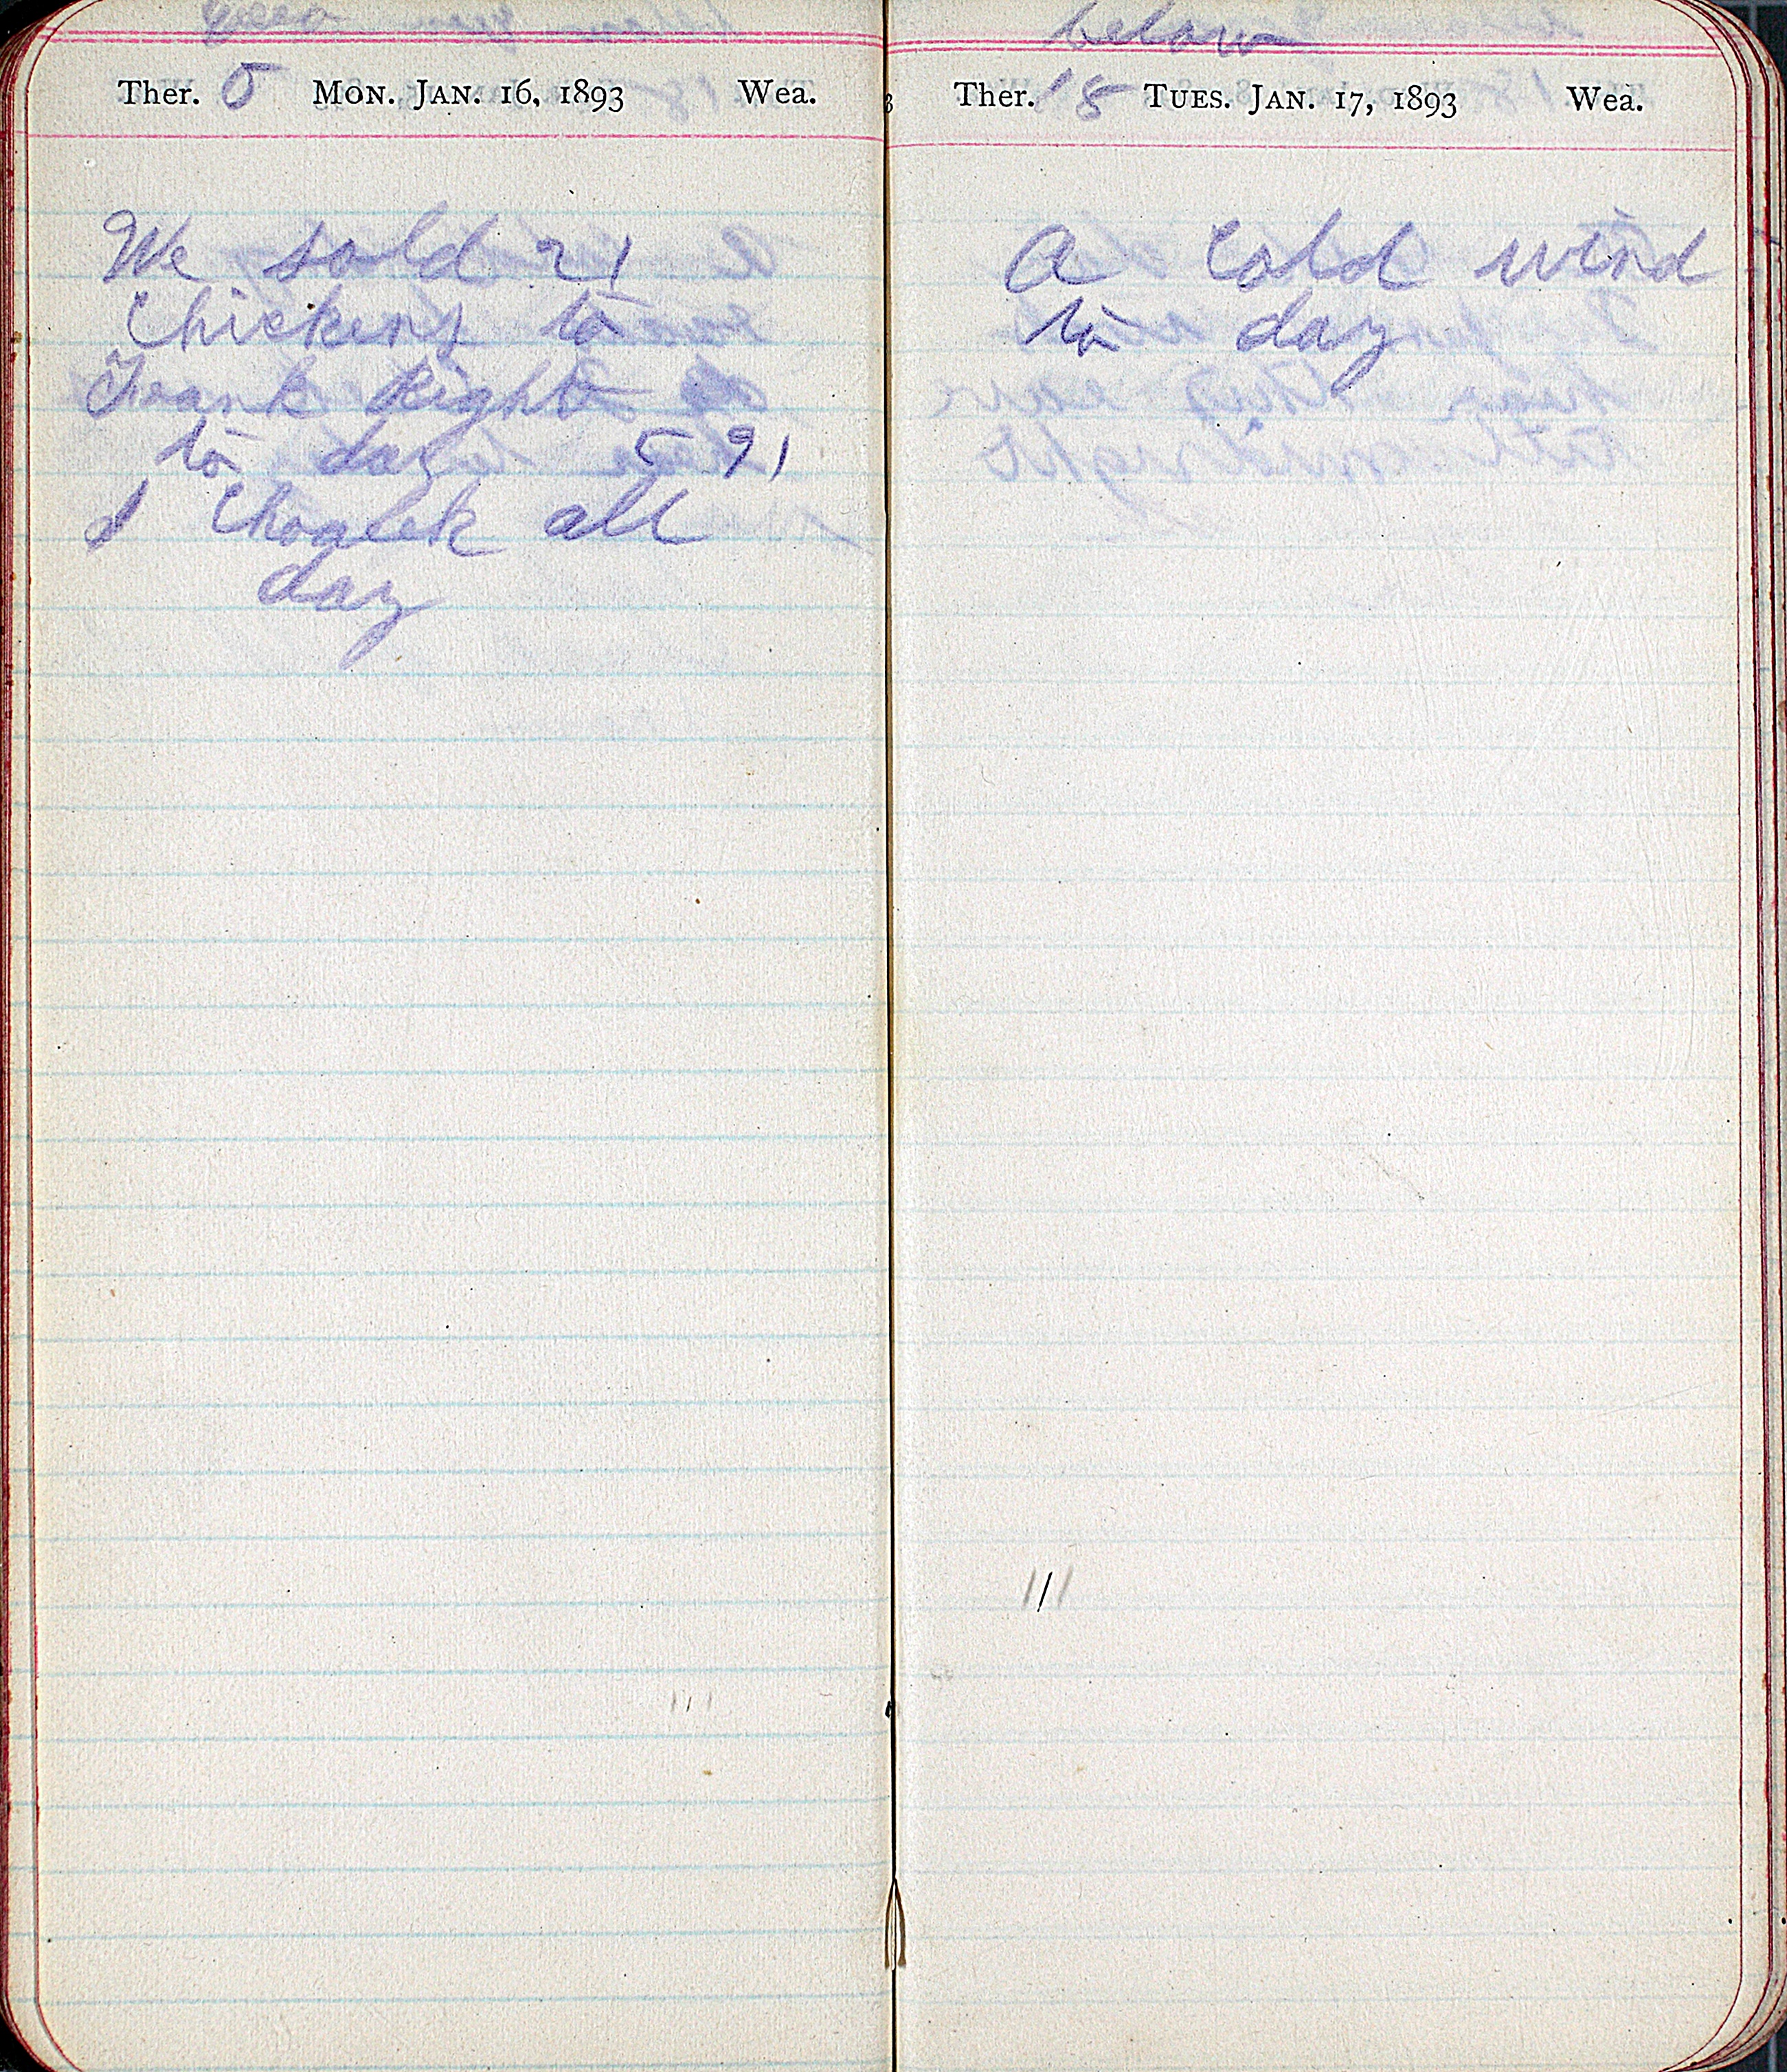 zero
Ther. 0 MON. JAN. 16, 1893 Wea.
We sold 21
Chickens to
Frank Right
to day 5 91
I all
day
below
Ther. 18 TUES. JAN. 17, 1893 Wea.
A cold wind
to day